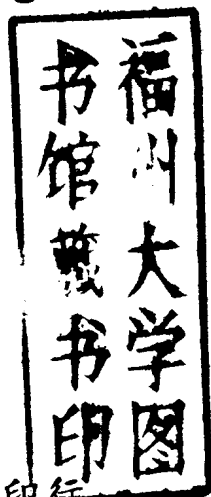 福州大学图
书馆藏书印
印行